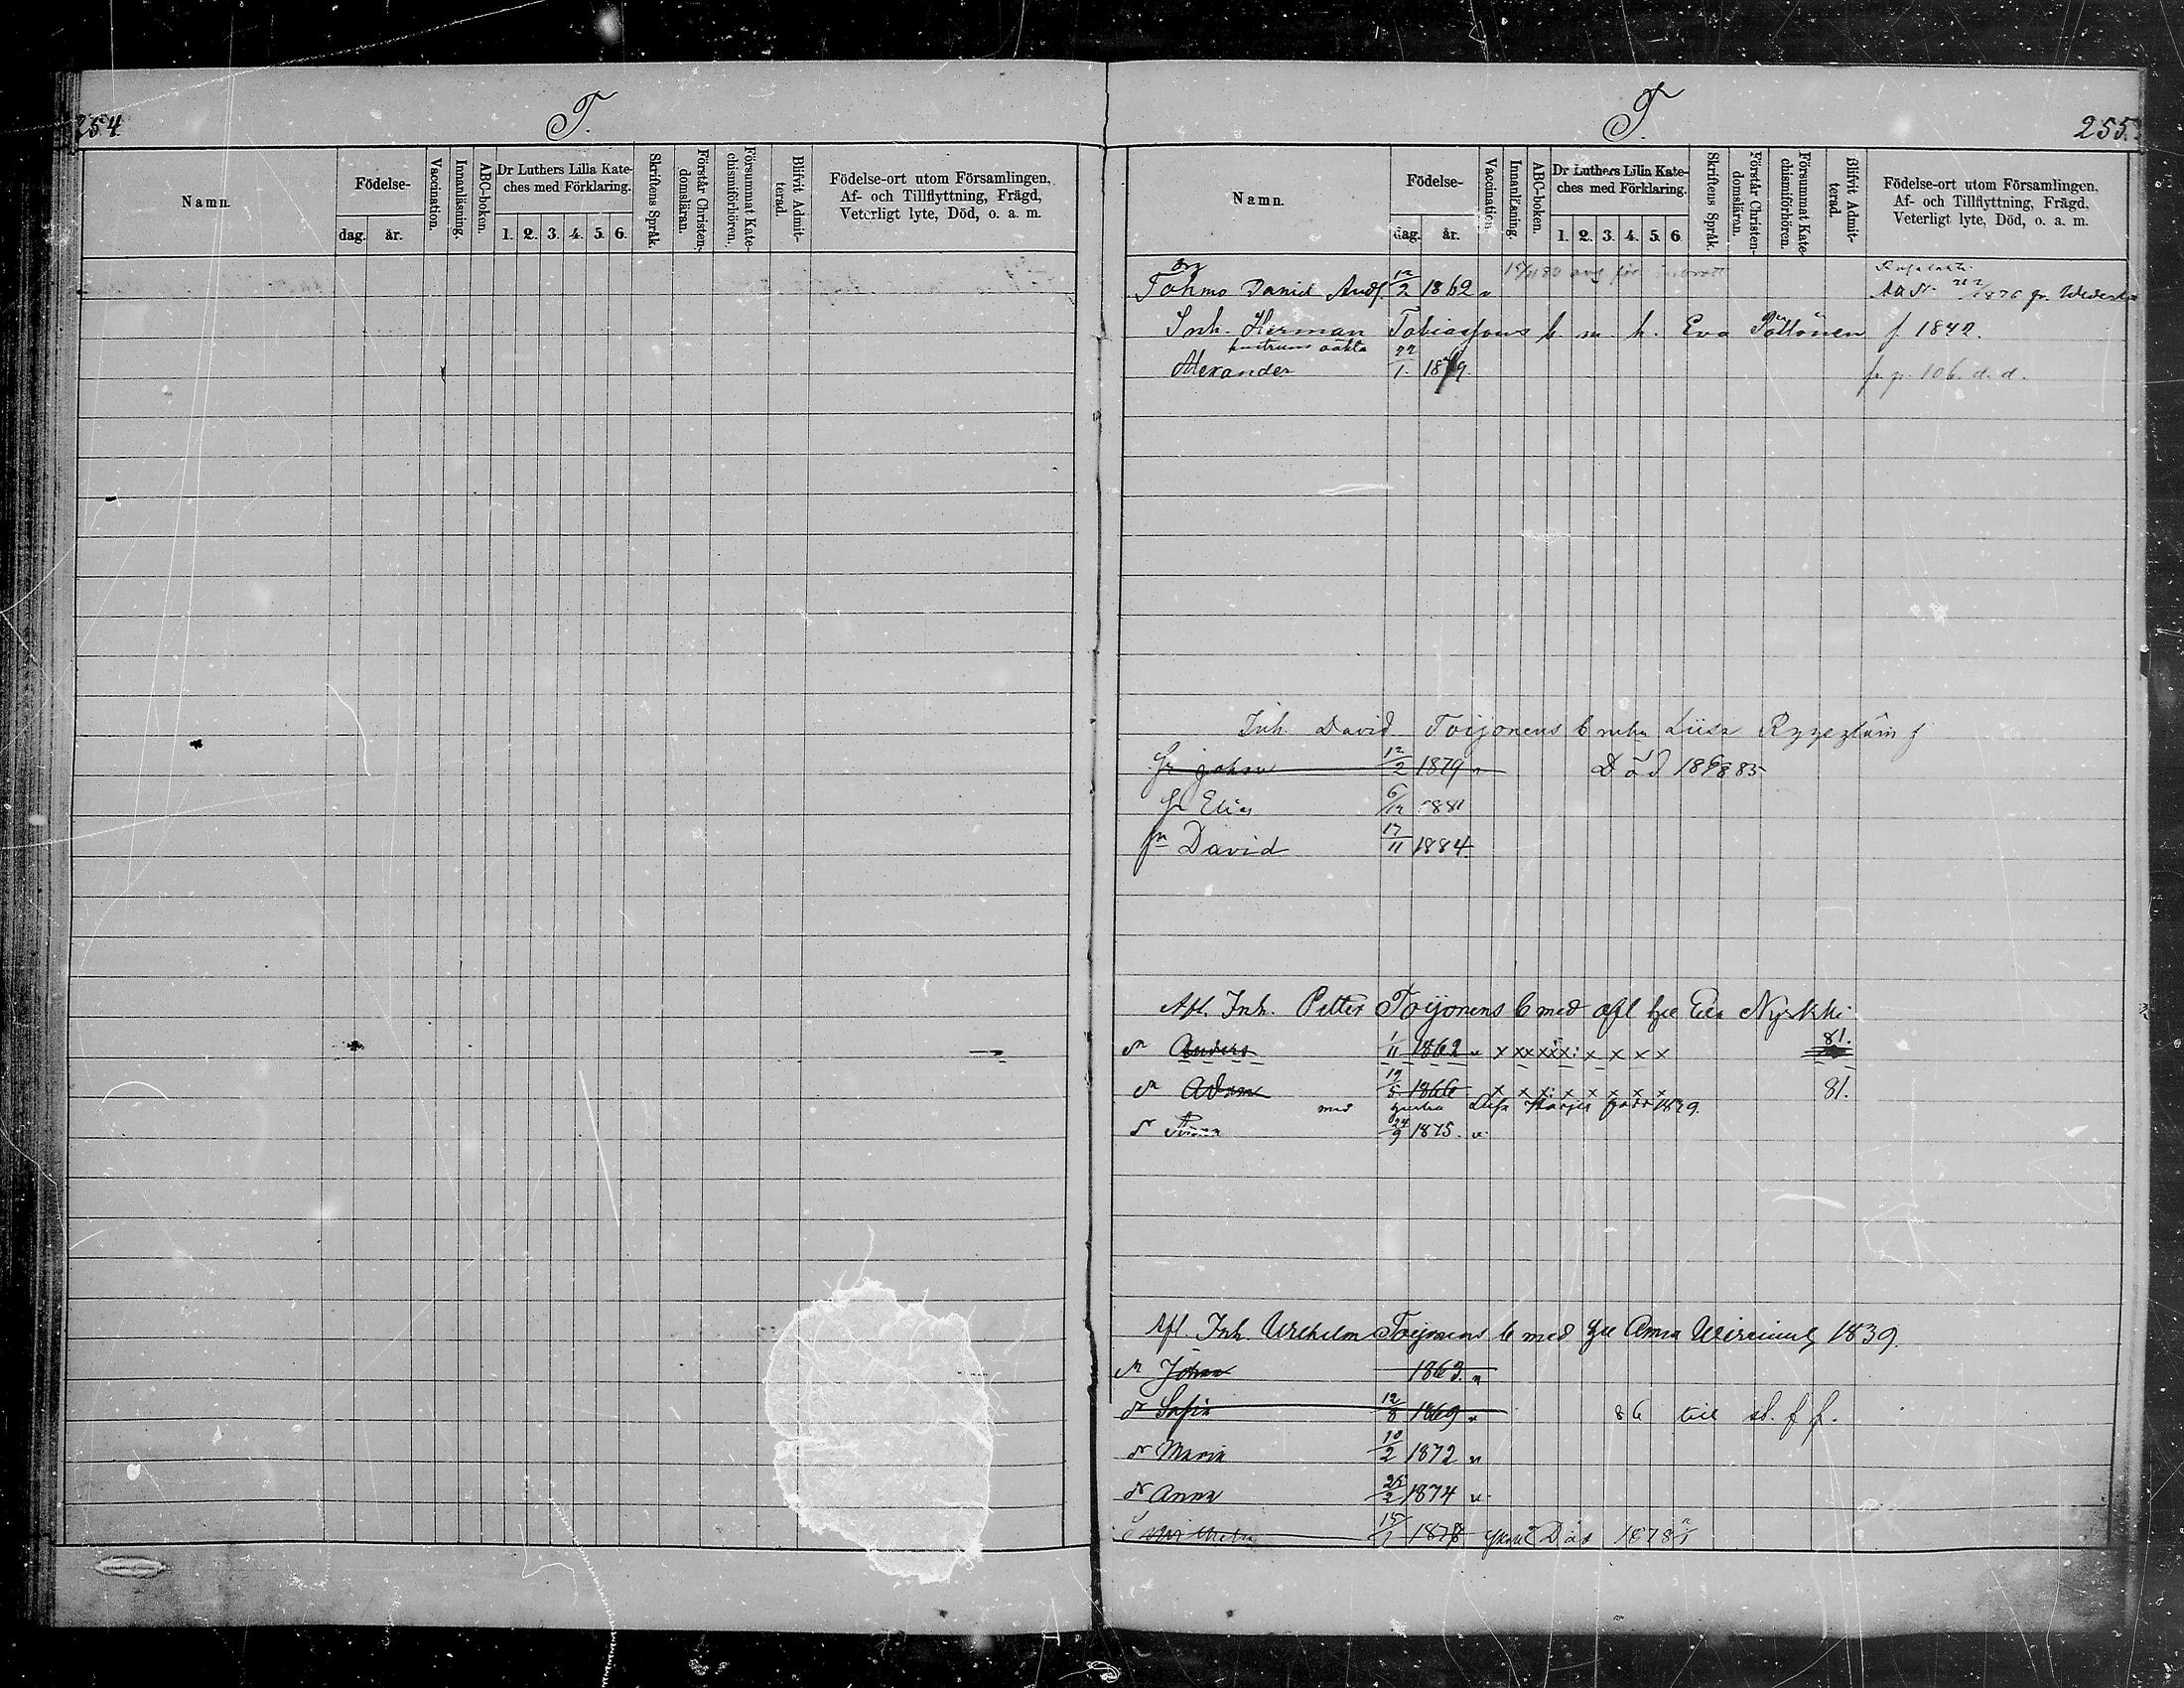 254.
T.
Namn.
Födelse-
dag.
år.
Vaccination.
Innanläsning.
ABC-boken.
Dr Luthers Lilla Kate-
ches med Förklaring.
1. 2. 3. 4. 5. 6.
Skriftens Språk.
Förstår Christen-
domsläran.
Försummat Kate-
chismiförhören.
Blifvit Admit-
terad.
Födelse-ort utom Församlingen,
Af- och Tillflyttning, Frägd,
Veterligt lyte, Död, o. a. m.
T.
255.
Namn.
Födelse-
dag.
år.
Vaccination
Innanläsning.
ABC-boken.
Dr Luthers Lilla Kate-
ches med Förklaring.
1. 2. 3. 4. 5. 6
Skriftens Språk.
Förstår Christen-
domsläran.
Försummat Kate-
chismiförhören.
Blifvit Admit-
terad.
Födelse-ort utom Församlingen,
Af- och Tillflyttning, Frägd,
Veterligt lyte, Död, o. a. m.
Tahmo David Andf. 12/2 1862 v
Inh. Herman Tobiassons b. m. h. Eva Pöllönen f. 1842.
hustruns oäkta
Alexander 22/1. 1879. p. 106. d. d.
Inh. David Toijonens b m hu Liisa
Sn Johan 12/2 1879 v Död 1885
Sn Elias 6/12 1881
Sn David 17/11 1884
Afl. Inh. Petter Toijonens b med afl hu Eva Nyrkki
Sn Anders 1/11 1862 v x x x x x x x x x x 81.
Sn Adam 19/5 1866 x x x x x x x x 81.
med hustru Lisa 1839.
D 24/9 1875. v
Afl. Inh. Wilhelm Toijonens b med hu Anna 1839.
Sn Johan 1863. v
dr Sofia 12/8 1869 v 86 till sl. f f.
dr Maria 10/2 1872 v
dr Anna 25/2 1874 v
S Wilhelm 15/1 1878 Död 1878